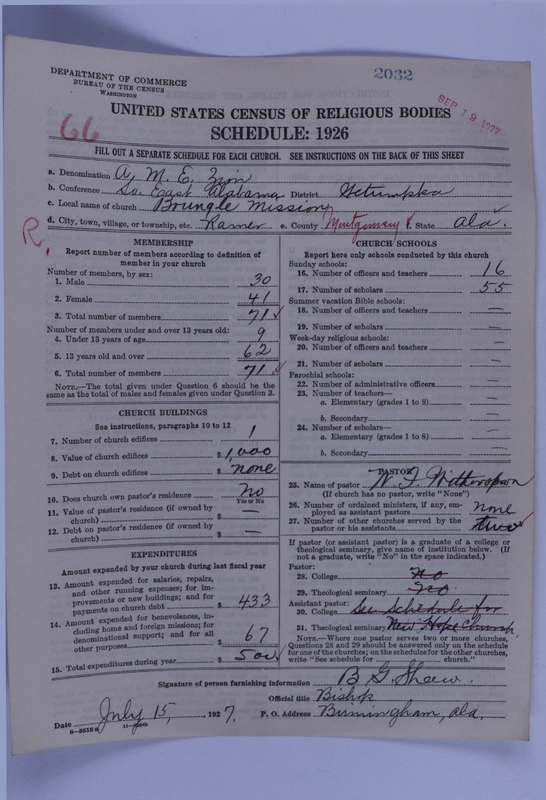 2032
DEPARTMENT OF COMMERCE
BUREAU OF THE CENSUS
WASHINGTON
SEP 19 1927
UNITED STATES CENSUS OF RELIGIOUS BODIES
SCHEDULE: 1926
66
FILL OUT A SEPARATE SCHEDULE FOR EACH CHURCH. SEE INSTRUCTIONS ON THE BACK OF THIS SHEET
a. Denomination A. M. E. Zion
b. Conference So. East Alabama District Wetumpka
c. Local name of church Mission
d. City, town, village, or township, etc. Ramer e. County Montgomery f. State Ala.
R.
MEMBERSHIP
Report number of members according to definition of
member in your church
Number of members, by sex:
1. Male 30
2. Female 41
3. Total number of members 71
Number of members under and over 13 years old:
4. Under 13 years of age 9
5. 13 years old and over 62
6. Total number of members 71
NOTE.—The total given under Question 6 should be the
same as the total of males and females given under Question 3.
CHURCH BUILDINGS
See instructions, paragraphs 10 to 12
7. Number of church edifices 1
8. Value of church edifices $ 1,000
9. Debt on church edifices $ none
10. Does church own pastor's residence No
Yes or No
11. Value of pastor's residence (if owned by
church) $ —
12. Debt on pastor's residence (if owned by
church) $ —
EXPENDITURES
Amount expended by your church during last fiscal year
13. Amount expended for salaries, repairs,
and other running expenses; for im-
provements or new buildings; and for
payments on church debt $ 433
14. Amount expended for benevolences, in-
cluding home and foreign missions; for
denominational support; and for all
other purposes $ 67
15. Total expenditures during year $ 500
CHURCH SCHOOLS
Report here only schools conducted by this church
Sunday schools:
16. Number of officers and teachers 16
17. Number of scholars 55
Summer vacation Bible schools:
18. Number of officers and teachers —
19. Number of scholars —
Week-day religious schools:
20. Number of officers and teachers —
21. Number of scholars —
Parochial schools:
22. Number of administrative officers —
23. Number of teachers—
a. Elementary (grades 1 to 8) —
b. Secondary —
24. Number of scholars—
a. Elementary (grades 1 to 8) —
b. Secondary —
PASTOR
25. Name of pastor Witherspoon
(If church has no pastor, write "None")
26. Number of ordained ministers, if any, em-
ployed as assistant pastors none
27. Number of other churches served by the
pastor or his assistants two
If pastor (or assistant pastor) is a graduate of a college or
theological seminary, give name of institution below. (If
not a graduate, write "No" in the space indicated.)
Pastor:
28. College No
29. Theological seminary No
Assistant pastor:
30. College See Schedule for
31. Theological seminary New Hope Church
NOTE.—Where one pastor serves two or more churches,
Questions 28 and 29 should be answered only on the schedule
for one of the churches; on the schedules for the other churches,
write "See schedule for church."
Signature of person furnishing information B. G. Shaw.
Official title Bishop
Date July 15, 1927. P. O. Address Birmingham, Ala.